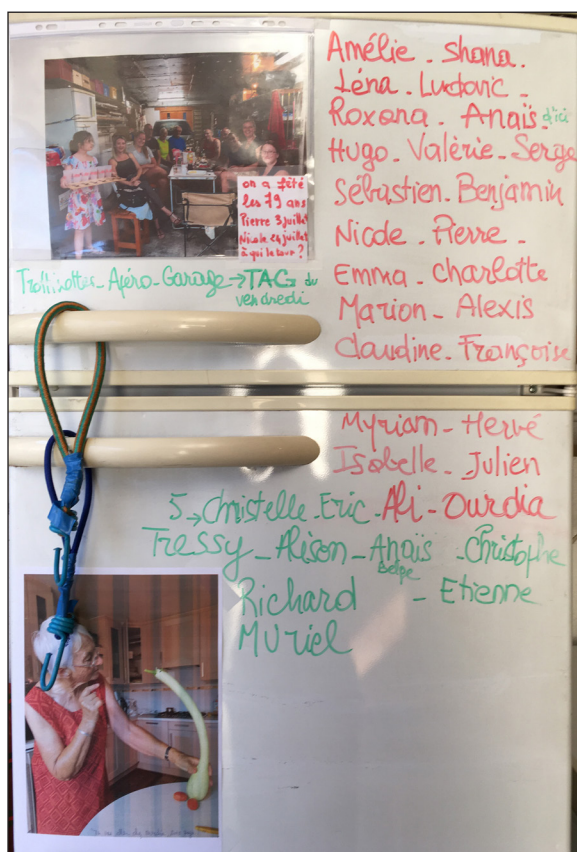 on a fêté
les 79 ans
Pierre 3 juillet
Nicole 24 juillet
à qui le tour ?
Trollinotter - Apéro - Garage → TAG du
vendredi
Amélie - Shana -
Léna - Ludovic -
Roxana - Anaïs d'ici
Hugo - Valérie - Serge
Sébastien - Benjamin
Nicole - Pierre -
Emma - Charlotte
Marion - Alexis
Claudine - Françoise
Myriam - Hervé
Isabelle - Julien
5 → Christelle - Eric - Ali - Ourdia
Tressy - Alison - Anaïs Belge - Christophe
Richard - Etienne
Muriel